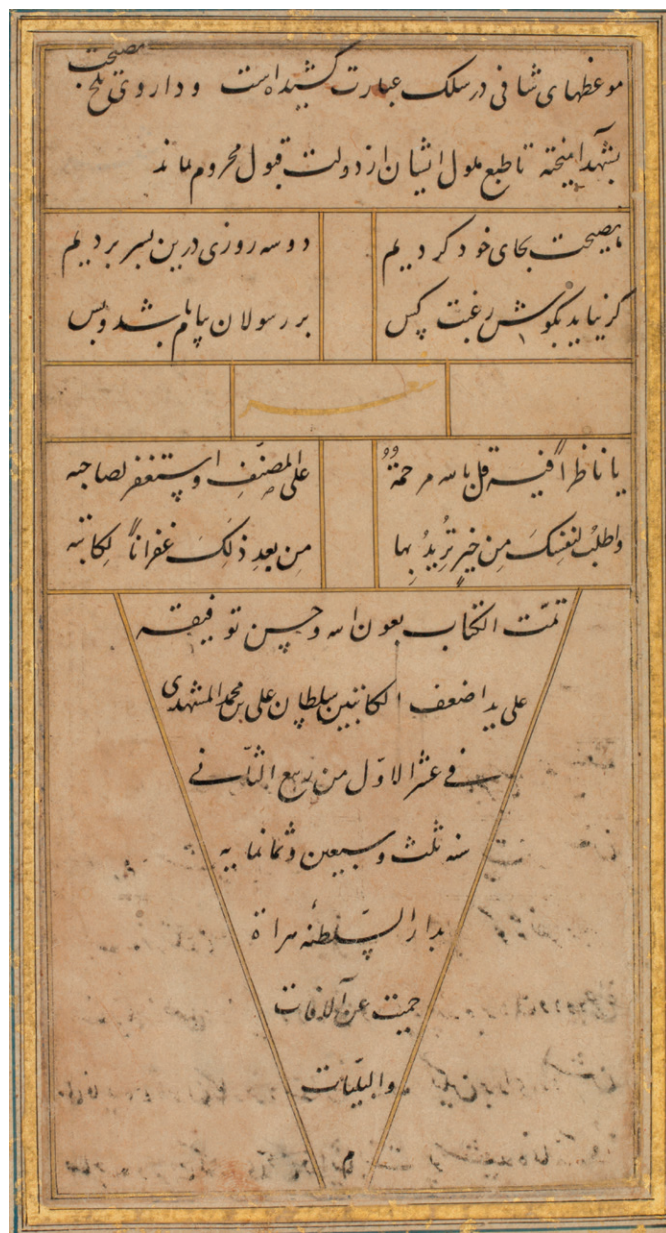 موعظهای شافی در سلک عبارت کشیده است و داروی تلخ نصیحت
بشهد آمیخته تا طبع ملول ایشان از دولت قبول محروم نماند
ما نصیحت بجای خود کردیم
دو سه روزی درین بسر بردیم
گر نیاید بگوش رغبت کس
بر رسولان پیام باشد و بس
شعر
یا ناظراً فیه سل بالله مرحمةً
علی المصنّفِ واستغفر لصاحبه
واطلب لنفسکَ مِن خیرٍ تُریدُ بها
مِن بعدِ ذلکَ غفراناً لِکاتبه
تمّت الکتاب بعون الله و حسن توفیقه
علی ید اضعف الکاتبین سلطان علی بن محمد المشهدی
فی عشر الاوّل من ربیع الثّانی
سنه ثلث و سبعین و ثمانمایه
بدار السّلطنه هراة
حمیت عن الآفات
والبلیّات
م